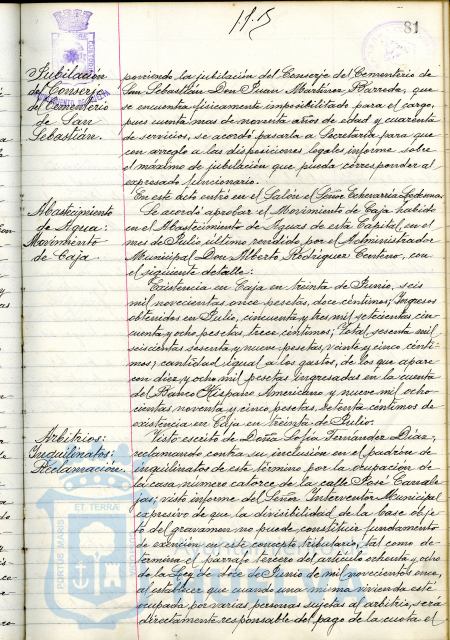 115
81
Jubilación
del Conserje
del Cementerio
de San
Sebastián.
poniendo la jubilación del Conserje del Cementerio de
San Sebastián Don Juan Martínez Barreda, que
se encuentra físicamente imposibilitado para el cargo,
pues cuenta mas de noventa años de edad y cuarenta
de servicios, se acordó pasarla a Secretaría para que
con arreglo a las disposiciones legales informe sobre
el máximo de jubilación que pueda corresponder al
expresado funcionario.
En este acto entro en el Salón el Señor Echevarría Ledesma.
Abastecimiento
de Agua:
Movimiento
de Caja.
Se acordó aprobar el Movimiento de Caja habido
en el Abastecimiento de Aguas de esta Capital en el
mes de Julio último rendido por el Administrador
Municipal Don Alberto Rodríguez Centeno, con
el siguiente detalle:
Existencia en Caja en treinta de Junio, seis
mil novecientas once pesetas, doce céntimos; Ingresos
obtenidos en Julio, cincuenta y tres mil setecientas cin-
cuenta y ocho pesetas trece céntimos; Total sesenta mil
seiscientas sesenta y nueve pesetas, veinte y cinco cénti-
mos, cantidad igual a los gastos, de los que apare-
cen diez y ocho mil pesetas ingresadas en la cuenta
del Banco Hispano Americano y nueve mil ocho-
cientas noventa y cinco pesetas, setenta céntimos de
existencia en Caja en treinta de Julio.
Arbitrios:
Inquilinatos:
Reclamación.
Visto escrito de Doña Sofía Fernández Díaz,
reclamando contra su inclusión en el padrón de
inquilinatos de este término por la ocupación de
la casa número catorce de la calle José Canale-
jas; visto informe del Señor Interventor Municipal
expresivo de que la divisibilidad de la base obje-
to del gravamen no puede constituir fundamento
de exención en este concepto tributario, tal como de-
termina el párrafo tercero del artículo ochenta y ocho
de la Ley de doce de Junio de mil novecientos once,
al establecer que cuando una misma vivienda esté
ocupada por varias personas sujetas al arbitrio, será
directamente responsable del pago de la cuota el
ET TERRA
PORTUS MARIS